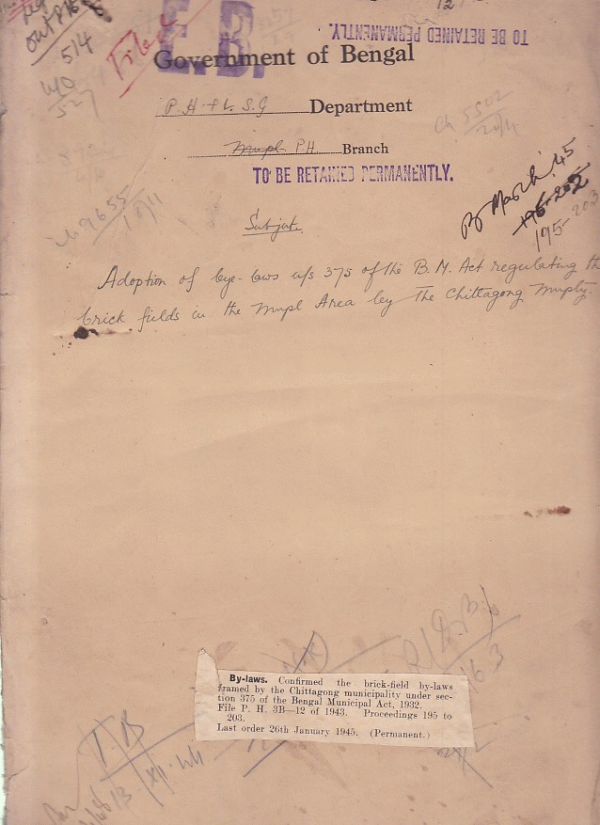 514
TO BE RETAINED PERMANENTLY.
E.B.
Government of Bengal
P. H. & L. S. G Department
Mupl P H Branch
TO BE RETAINED PERMANENTLY.
B March 45
195-202
195-203
Subject
Adoption of bye-laws u/s 375 of the B. M. Act regulating the
brick fields in the Mupl Area by The Chittagong Mupty.
By-laws. Confirmed the brick-field by-laws
framed by the Chittagong municipality under sec-
tion 375 of the Bengal Municipal Act, 1932.
File P. H. 3B—12 of 1943. Proceedings 195 to
203.
Last order 26th January 1945. (Permanent.)